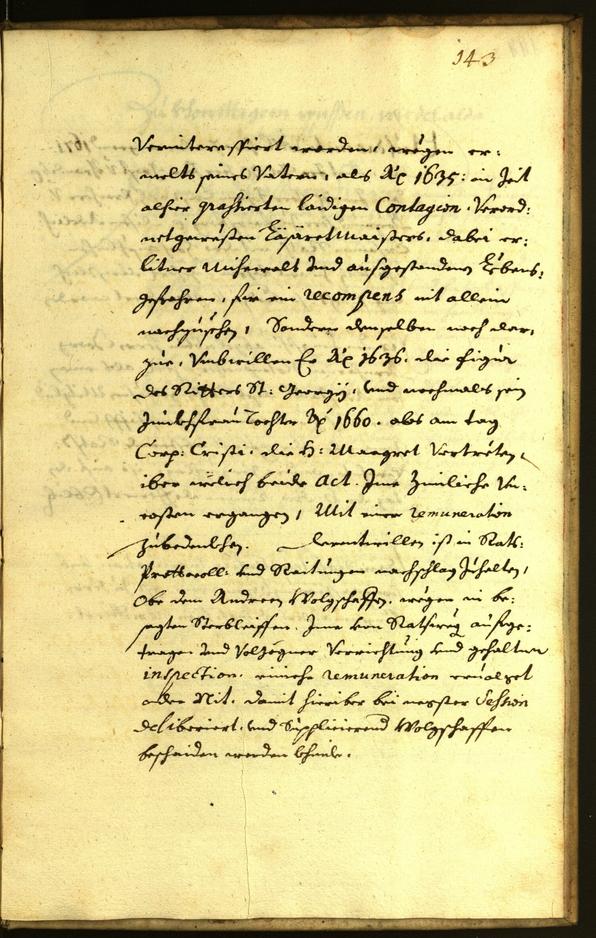 143
Verinteressiert worden, wegen er:
melts seines Vatern, als Ao 1635: in Zeit
alhier grassierten laidigen Contagion. Verord:
netgewesten Lasaret Maisters, dabei er:
litner Mihewalt und ausgestandenen Lebens:
gefahren, für ein recompens nit allein
nachzusehen, Sondern denselben noch dar:
zue, Umbwillen Er Ao 1636. die figur
des Ritters St: Georgÿ, und nochmals sein
Tochter Ao 1660. als am tag
Corp: Cristi. die H: Margret Vertreten,
iber welich beide Act. Ime Zimliche Un:
costen ergangen, Mit einer remuneration
zubedenkhen. Derentwillen ist in Rats:
Prottocoll: und Raitungen nachschlag Zuhalten,
Obe dem Andreen Wolgschaffen, wegen in be:
sagten Sterbleiffen. Ime von Ratswegen aufge:
tragen und Volzogner Verrichtung und gehaltner
inspection. einiche remuneration ervolget
oder Nit. damit hieriber bei negster Session
deliberiert, und Supplicierend Wolgschaffen
bescheiden werden khinde.